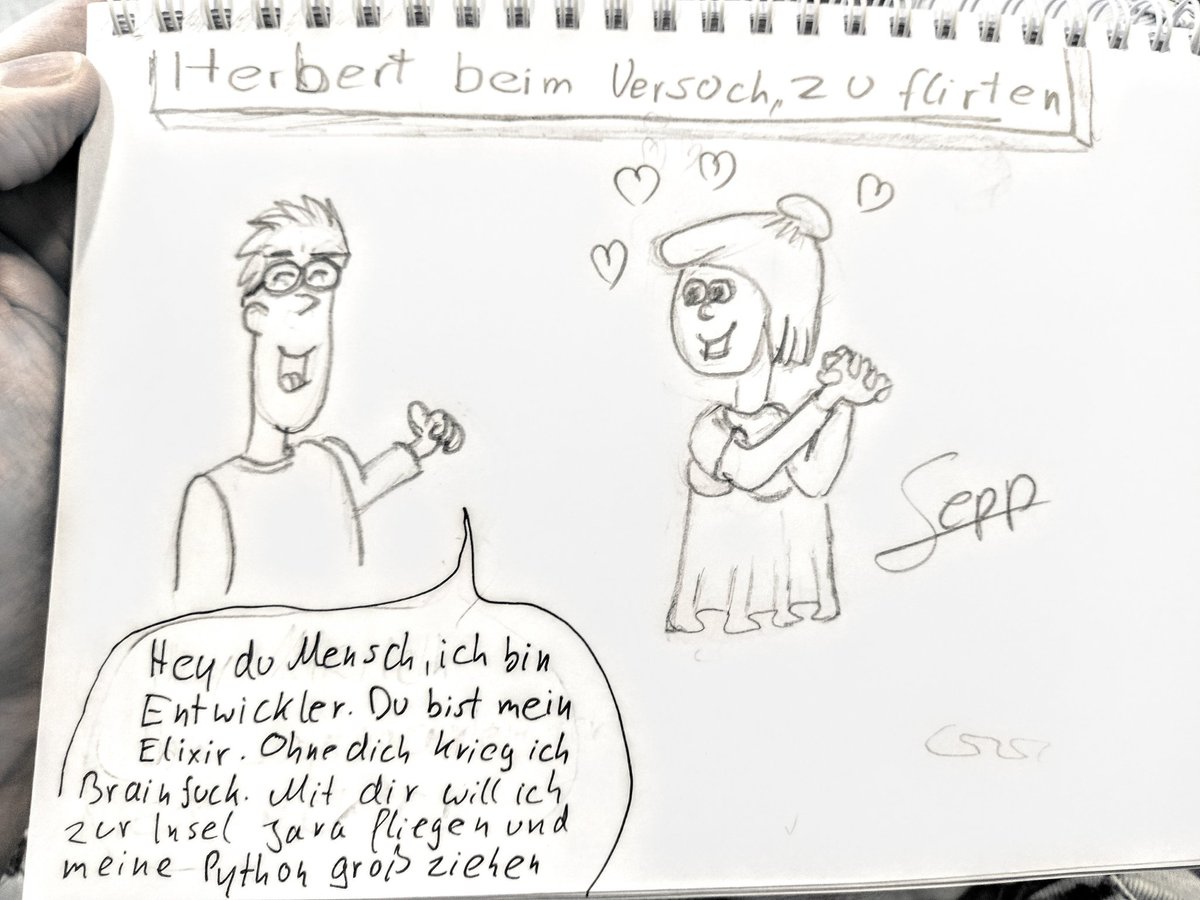 Herbert beim Versuch, zu flirten
Sepp
Hey du Mensch, ich bin
Entwickler. Du bist mein
Elixir. Ohne dich krieg ich
Brainfuck. Mit dir will ich
zur Insel Java fliegen und
meine Python groß ziehen